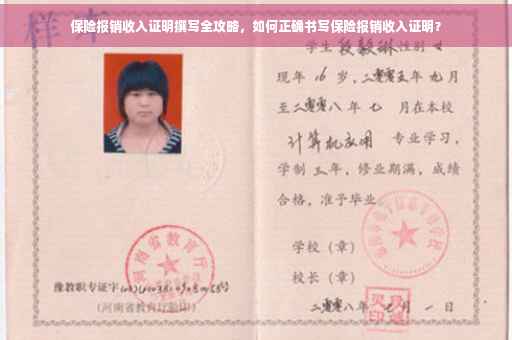 保险报销收入证明撰写全攻略，如何正确书写保险报销收入证明？
样本
学生段毅琳性别女
现年16岁，二零零五年九月
至二零零八年七月在本校
计算机应用专业学习，
学制三年，修业期满，成绩
合格，准予毕业。
学校（章）
校长（章）
二零零八年七月一日
河南省教育厅
豫教职专证字
（河南省教育厅验印）